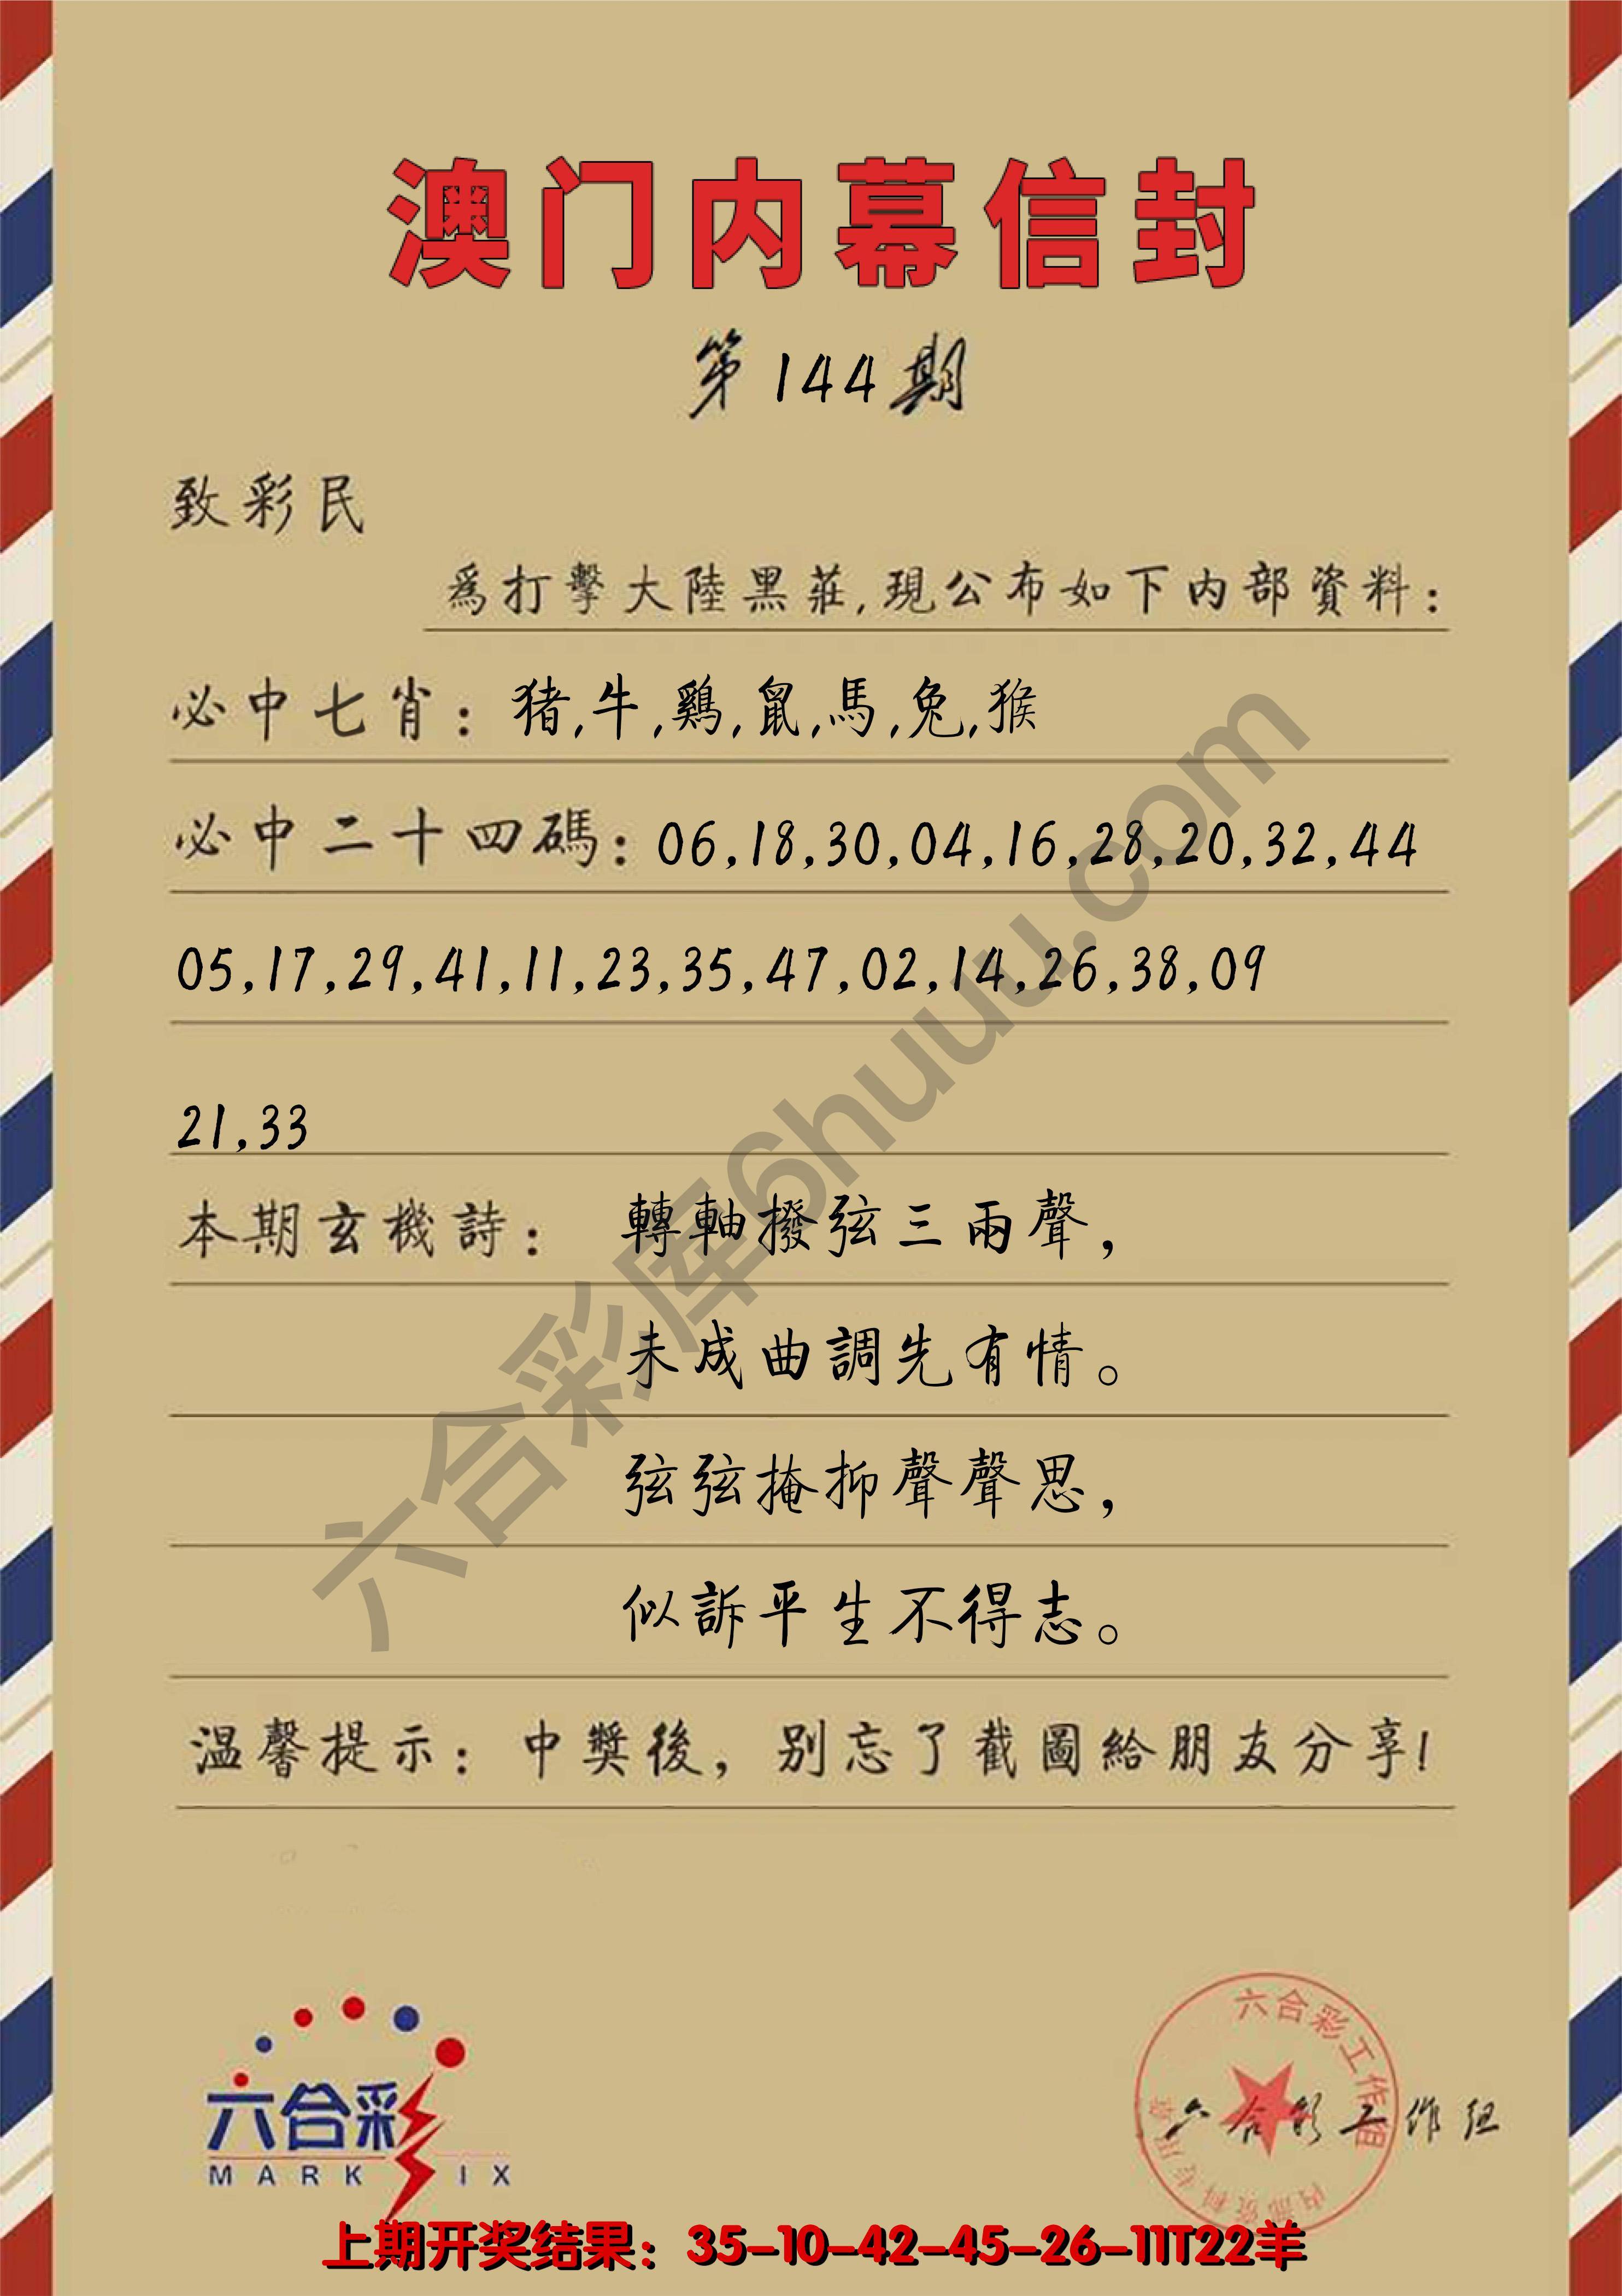 澳门内幕信封
第144期
致彩民
爲打擊大陸黑莊,現公布如下内部資料:
必中七肖: 猪,牛,鷄,鼠,馬,兔,猴
必中二十四碼: 06,18,30,04,16,28,20,32,44
05,17,29,41,11,23,35,47,02,14,26,38,09
21,33
本期玄機詩: 轉軸撥弦三兩聲,
未成曲調先有情。
弦弦掩抑聲聲思,
似訴平生不得志。
温馨提示: 中獎後, 别忘了截圖給朋友分享!
六合彩库6huuu.com
六合彩
MARK IX
六合彩工作组
内部资料专用章
六合彩工作组
上期开奖结果: 35-10-42-45-26-11T22羊